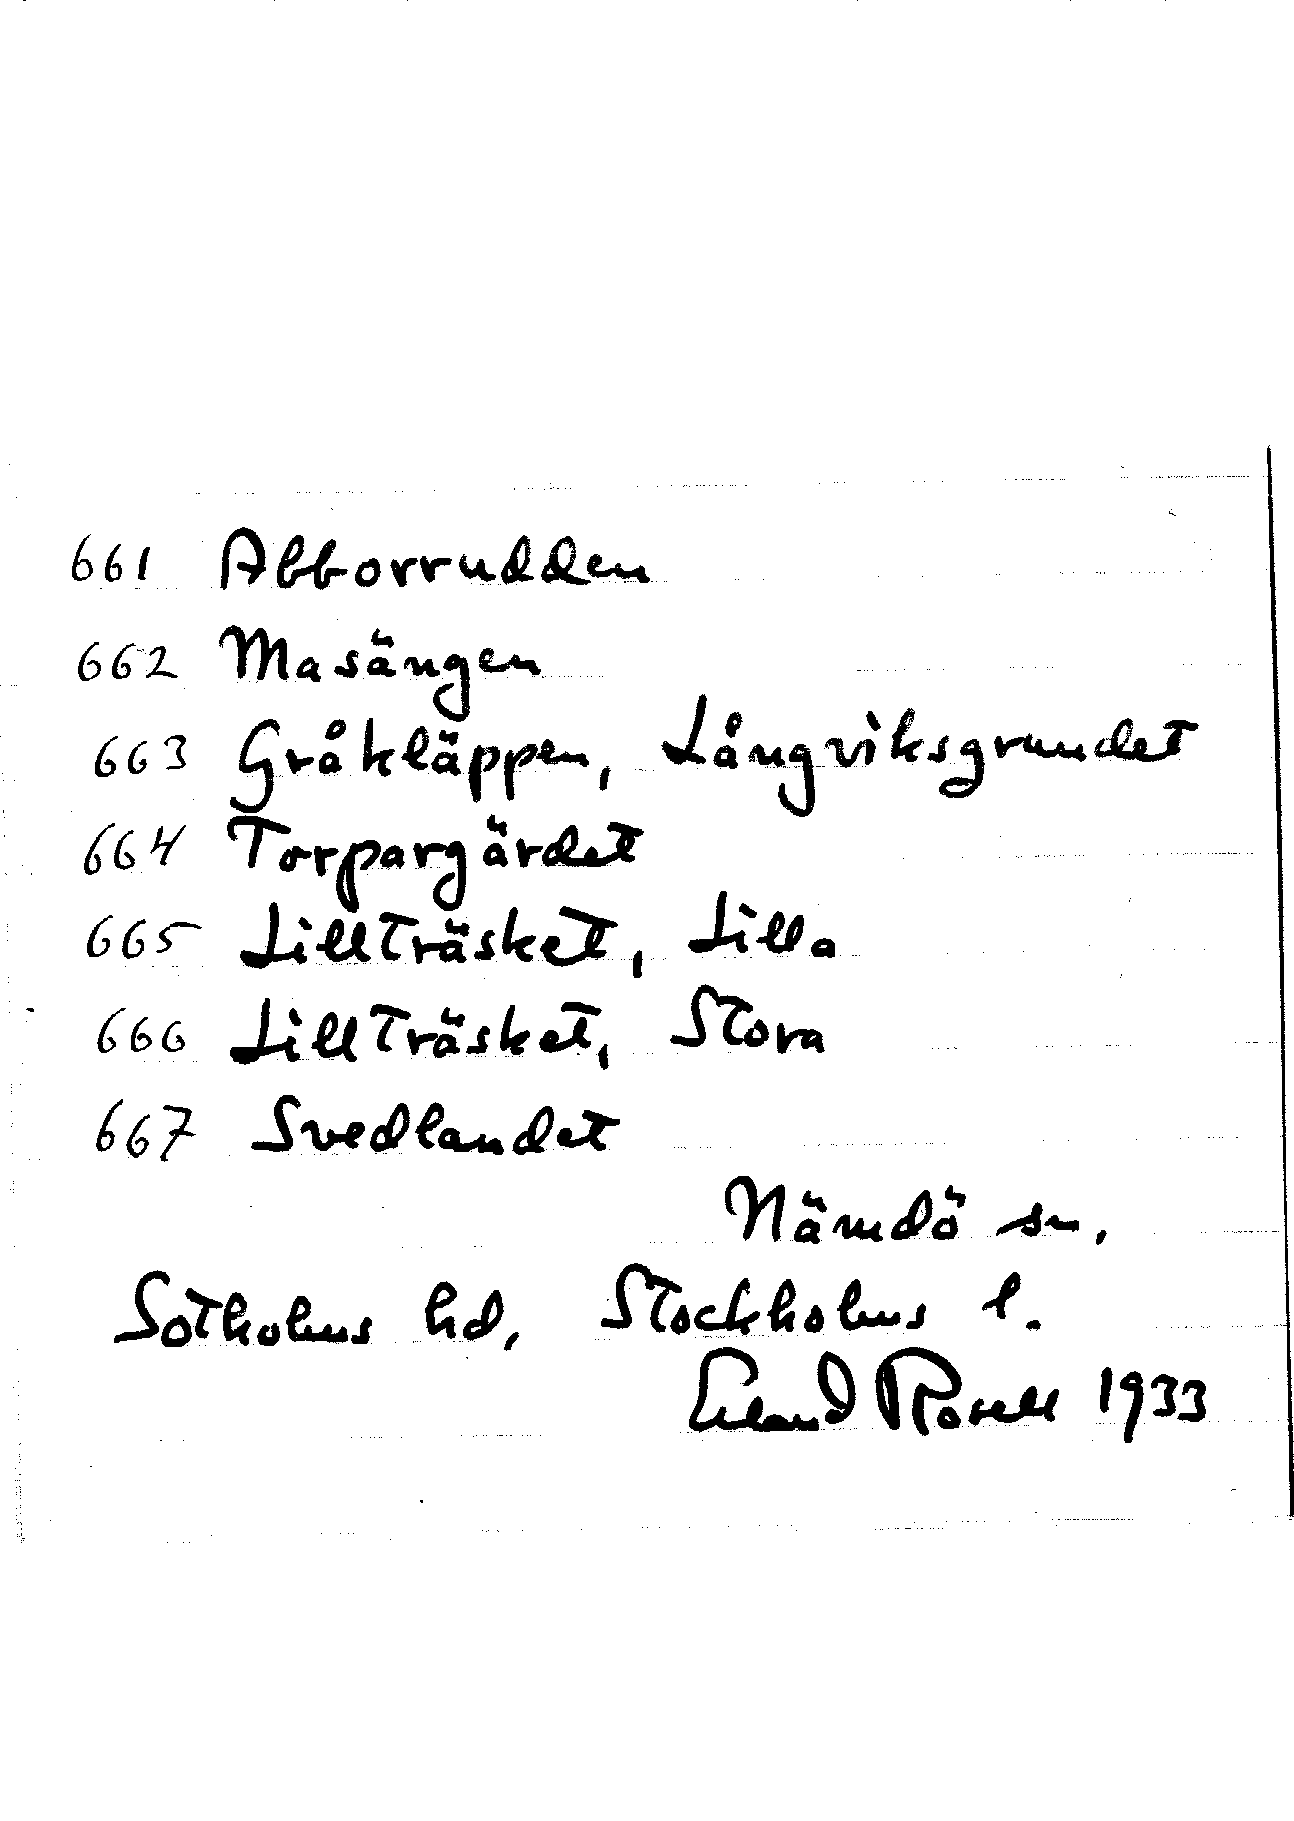 661 Abborrudden
662 Masängen
663 Gråkläppen, Långviksgrundet
664 Torpargärdet
665 Lillträsket, Lilla
666 Lillträsket, Stora
667 Svedlandet
Nämdö sn,
Sotholms hd, Stockholms l.
Erland Rosell 1933